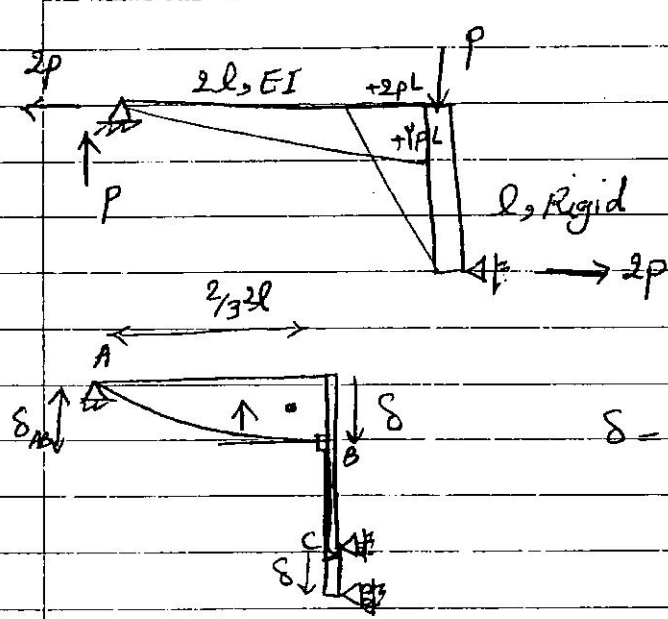 P
2P
2l, EI
+2PL
+2PL
P
l, Rigid
2P
2/3 2l
A
δAB
δ
δ =
B
C
δ